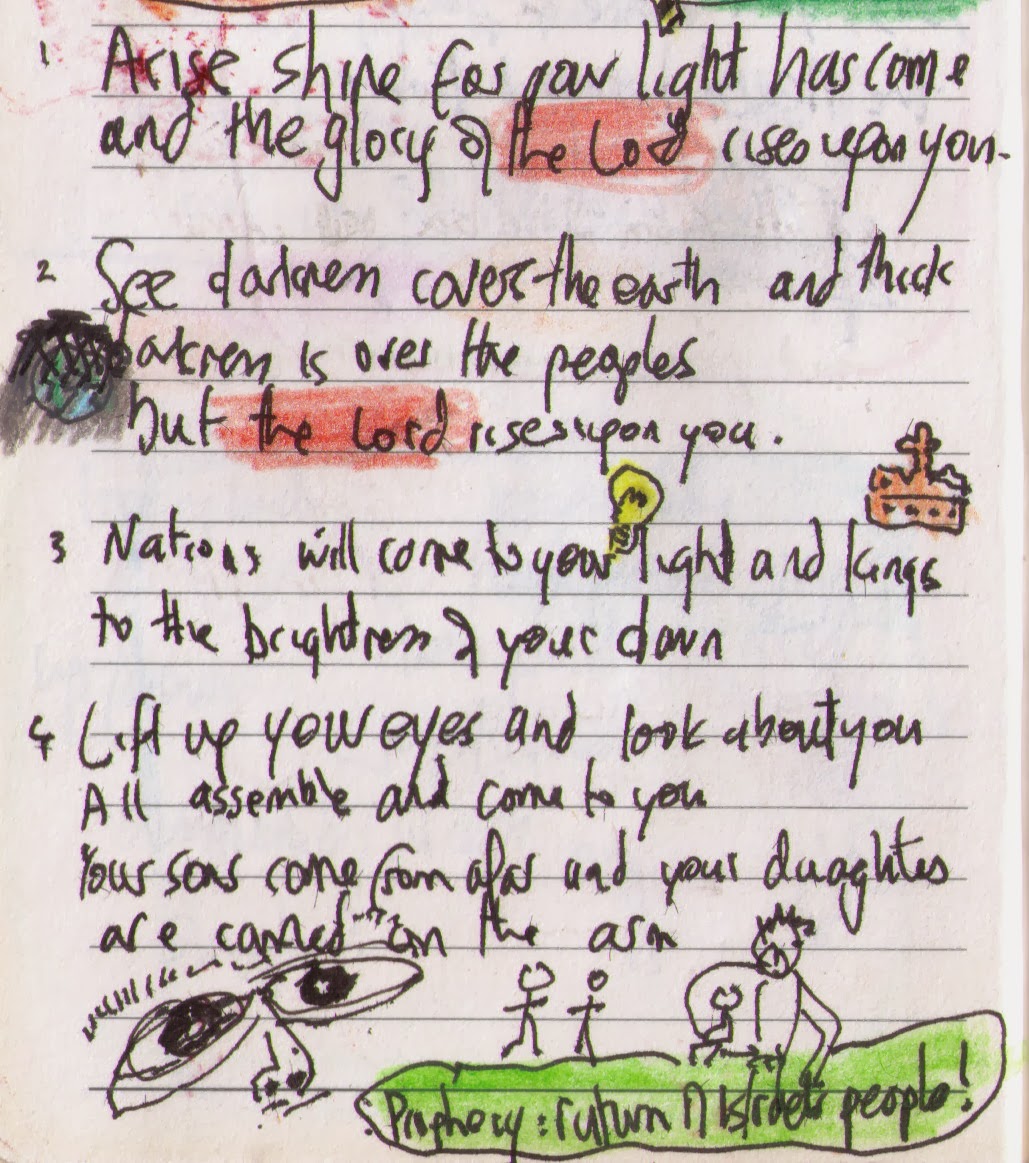 1 Arise shine for your light has come
and the glory of the Lord rises upon you.
2 See darkness covers the earth and thick
Darkness is over the peoples
but the Lord rises upon you.
3 Nations will come to your light and kings
to the brightness of your dawn
4 Lift up your eyes and look about you
All assemble and come to you
Your sons come from afar and your duaghtes
are carried on the arm
Prophecy: return of Israel's people!